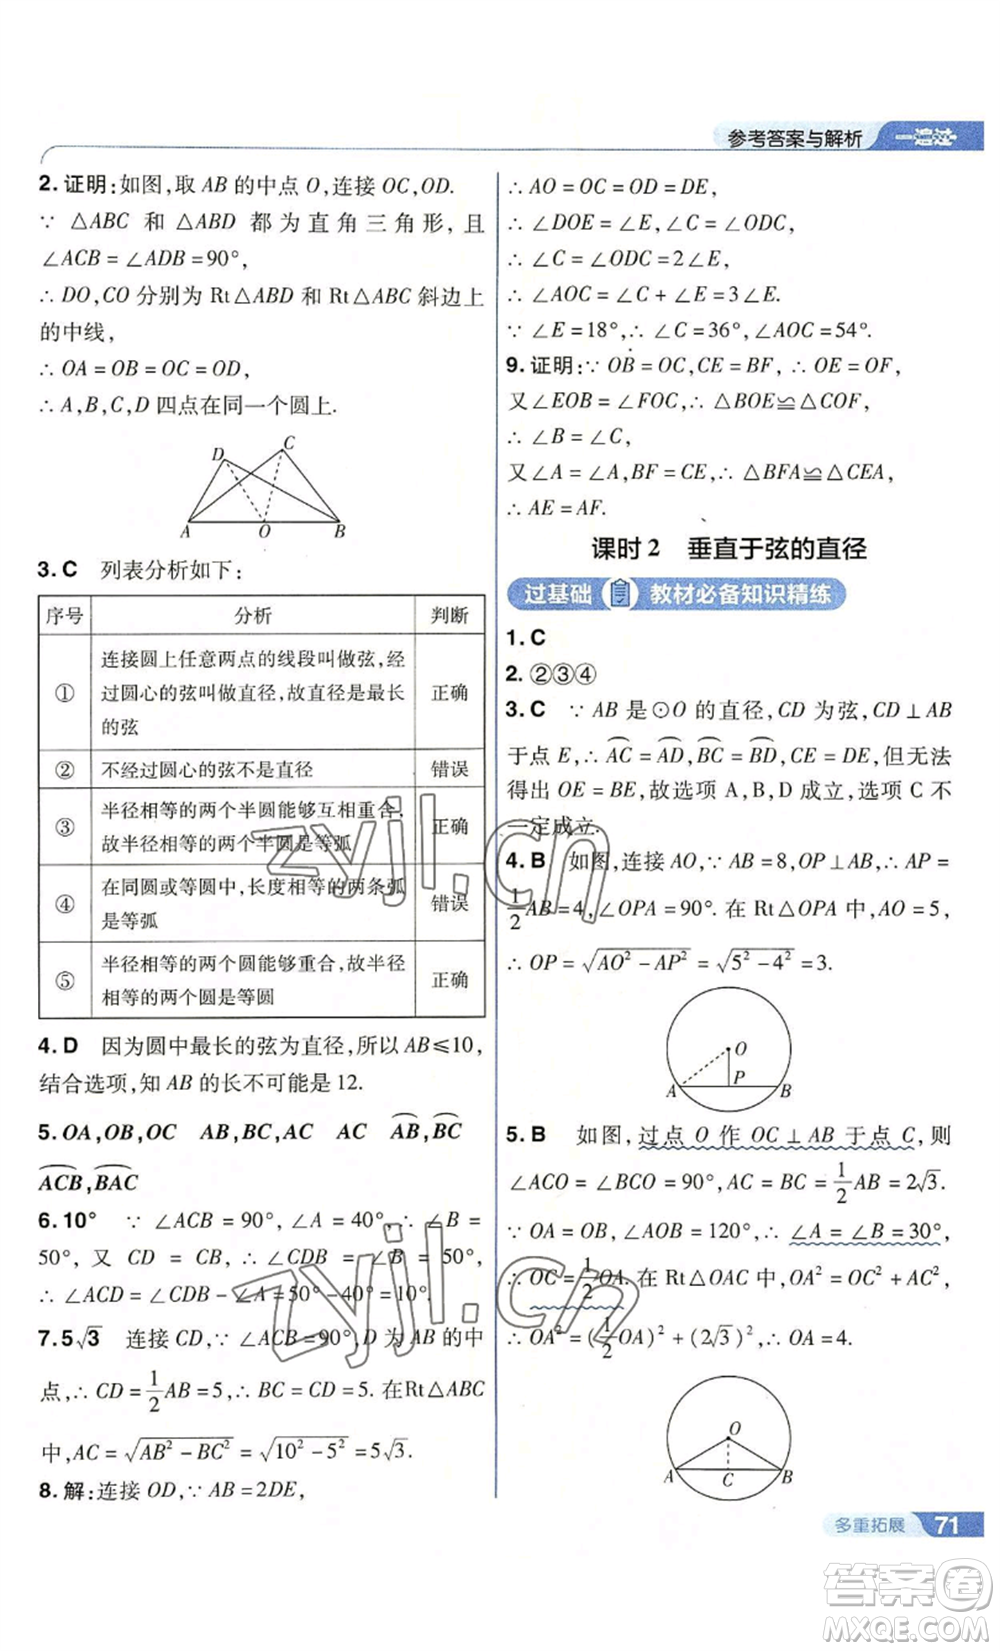 参考答案与解析 一遍过
2.证明:如图,取 AB 的中点 O,连接 OC,OD.
∵ △ABC 和 △ABD 都为直角三角形,且
∠ACB = ∠ADB = 90°,
∴ DO,CO 分别为 Rt△ABD 和 Rt△ABC 斜边上
的中线,
∴ OA = OB = OC = OD,
∴ A,B,C,D 四点在同一个圆上.
D C
A O B
3. C 列表分析如下:
序号 分析 判断
① 连接圆上任意两点的线段叫做弦,经过圆心的弦叫做直径,故直径是最长的弦 正确
② 不经过圆心的弦不是直径 错误
③ 半径相等的两个半圆能够互相重合,故半径相等的两个半圆是等弧 正确
④ 在同圆或等圆中,长度相等的两条弧是等弧 错误
⑤ 半径相等的两个圆能够重合,故半径相等的两个圆是等圆 正确
4. D 因为圆中最长的弦为直径,所以 AB≤10,
结合选项,知 AB 的长不可能是 12.
5. OA,OB,OC AB,BC,AC AC A͡B,B͡C
A͡CB,B͡AC
6. 10° ∵ ∠ACB = 90°,∠A = 40°,∴ ∠B =
50°,又 CD = CB,∴ ∠CDB = ∠B = 50°,
∴ ∠ACD = ∠CDB - ∠A = 50° - 40° = 10°.
7. 5√3 连接 CD,∵ ∠ACB = 90°,D 为 AB 的中
点,∴ CD = 1/2 AB = 5,∴ BC = CD = 5. 在Rt△ABC
中,AC = √(AB² - BC²) = √(10² - 5²) = 5√3.
8. 解:连接 OD,∵ AB = 2DE,
∴ AO = OC = OD = DE,
∴ ∠DOE = ∠E,∠C = ∠ODC,
∴ ∠ODC = 2∠E,
∴ ∠AOC = ∠C + ∠E = 3∠E.
∵ ∠E = 18°,∴ ∠C = 36°,∠AOC = 54°.
9. 证明:∵ OB = OC,CE = BF,∴ OE = OF,
又∠EOB = ∠FOC,∴ △BOE≌△COF,
∴ ∠B = ∠C,
又∠A = ∠A,BF = CE,∴ △BFA≌△CEA,
∴ AE = AF.
课时 2 垂直于弦的直径
过基础 教材必备知识精练
1. C
2. ②③④
3. C ∵ AB 是⊙O 的直径,CD 为弦,CD⊥AB
于点 E,∴ A͡C = A͡D,B͡C = B͡D,CE = DE,但无法
得出 OE = BE,故选项 A,B,D 成立,选项 C 不
一定成立.
4. B 如图,连接 AO,∵ AB = 8,OP⊥AB,∴ AP =
1/2 AB = 4,∠OPA = 90°. 在 Rt△OPA 中,AO = 5,
∴ OP = √(AO² - AP²) = √(5² - 4²) = 3.
O
A P B
5. B 如图,过点 O 作 OC⊥AB 于点 C,则
∠ACO = ∠BCO = 90°,AC = BC = 1/2 AB = 2√3.
∵ OA = OB,∠AOB = 120°,∴ ∠A = ∠B = 30°,
∴ OC = 1/2 OA. 在 Rt△OAC 中,OA² = OC² + AC²,
∴ OA² = (1/2 OA)² + (2√3)²,∴ OA = 4.
O
A C B
多重拓展 71
zyjl.cn
zyjl.cn
答案圈
MXQE.COM